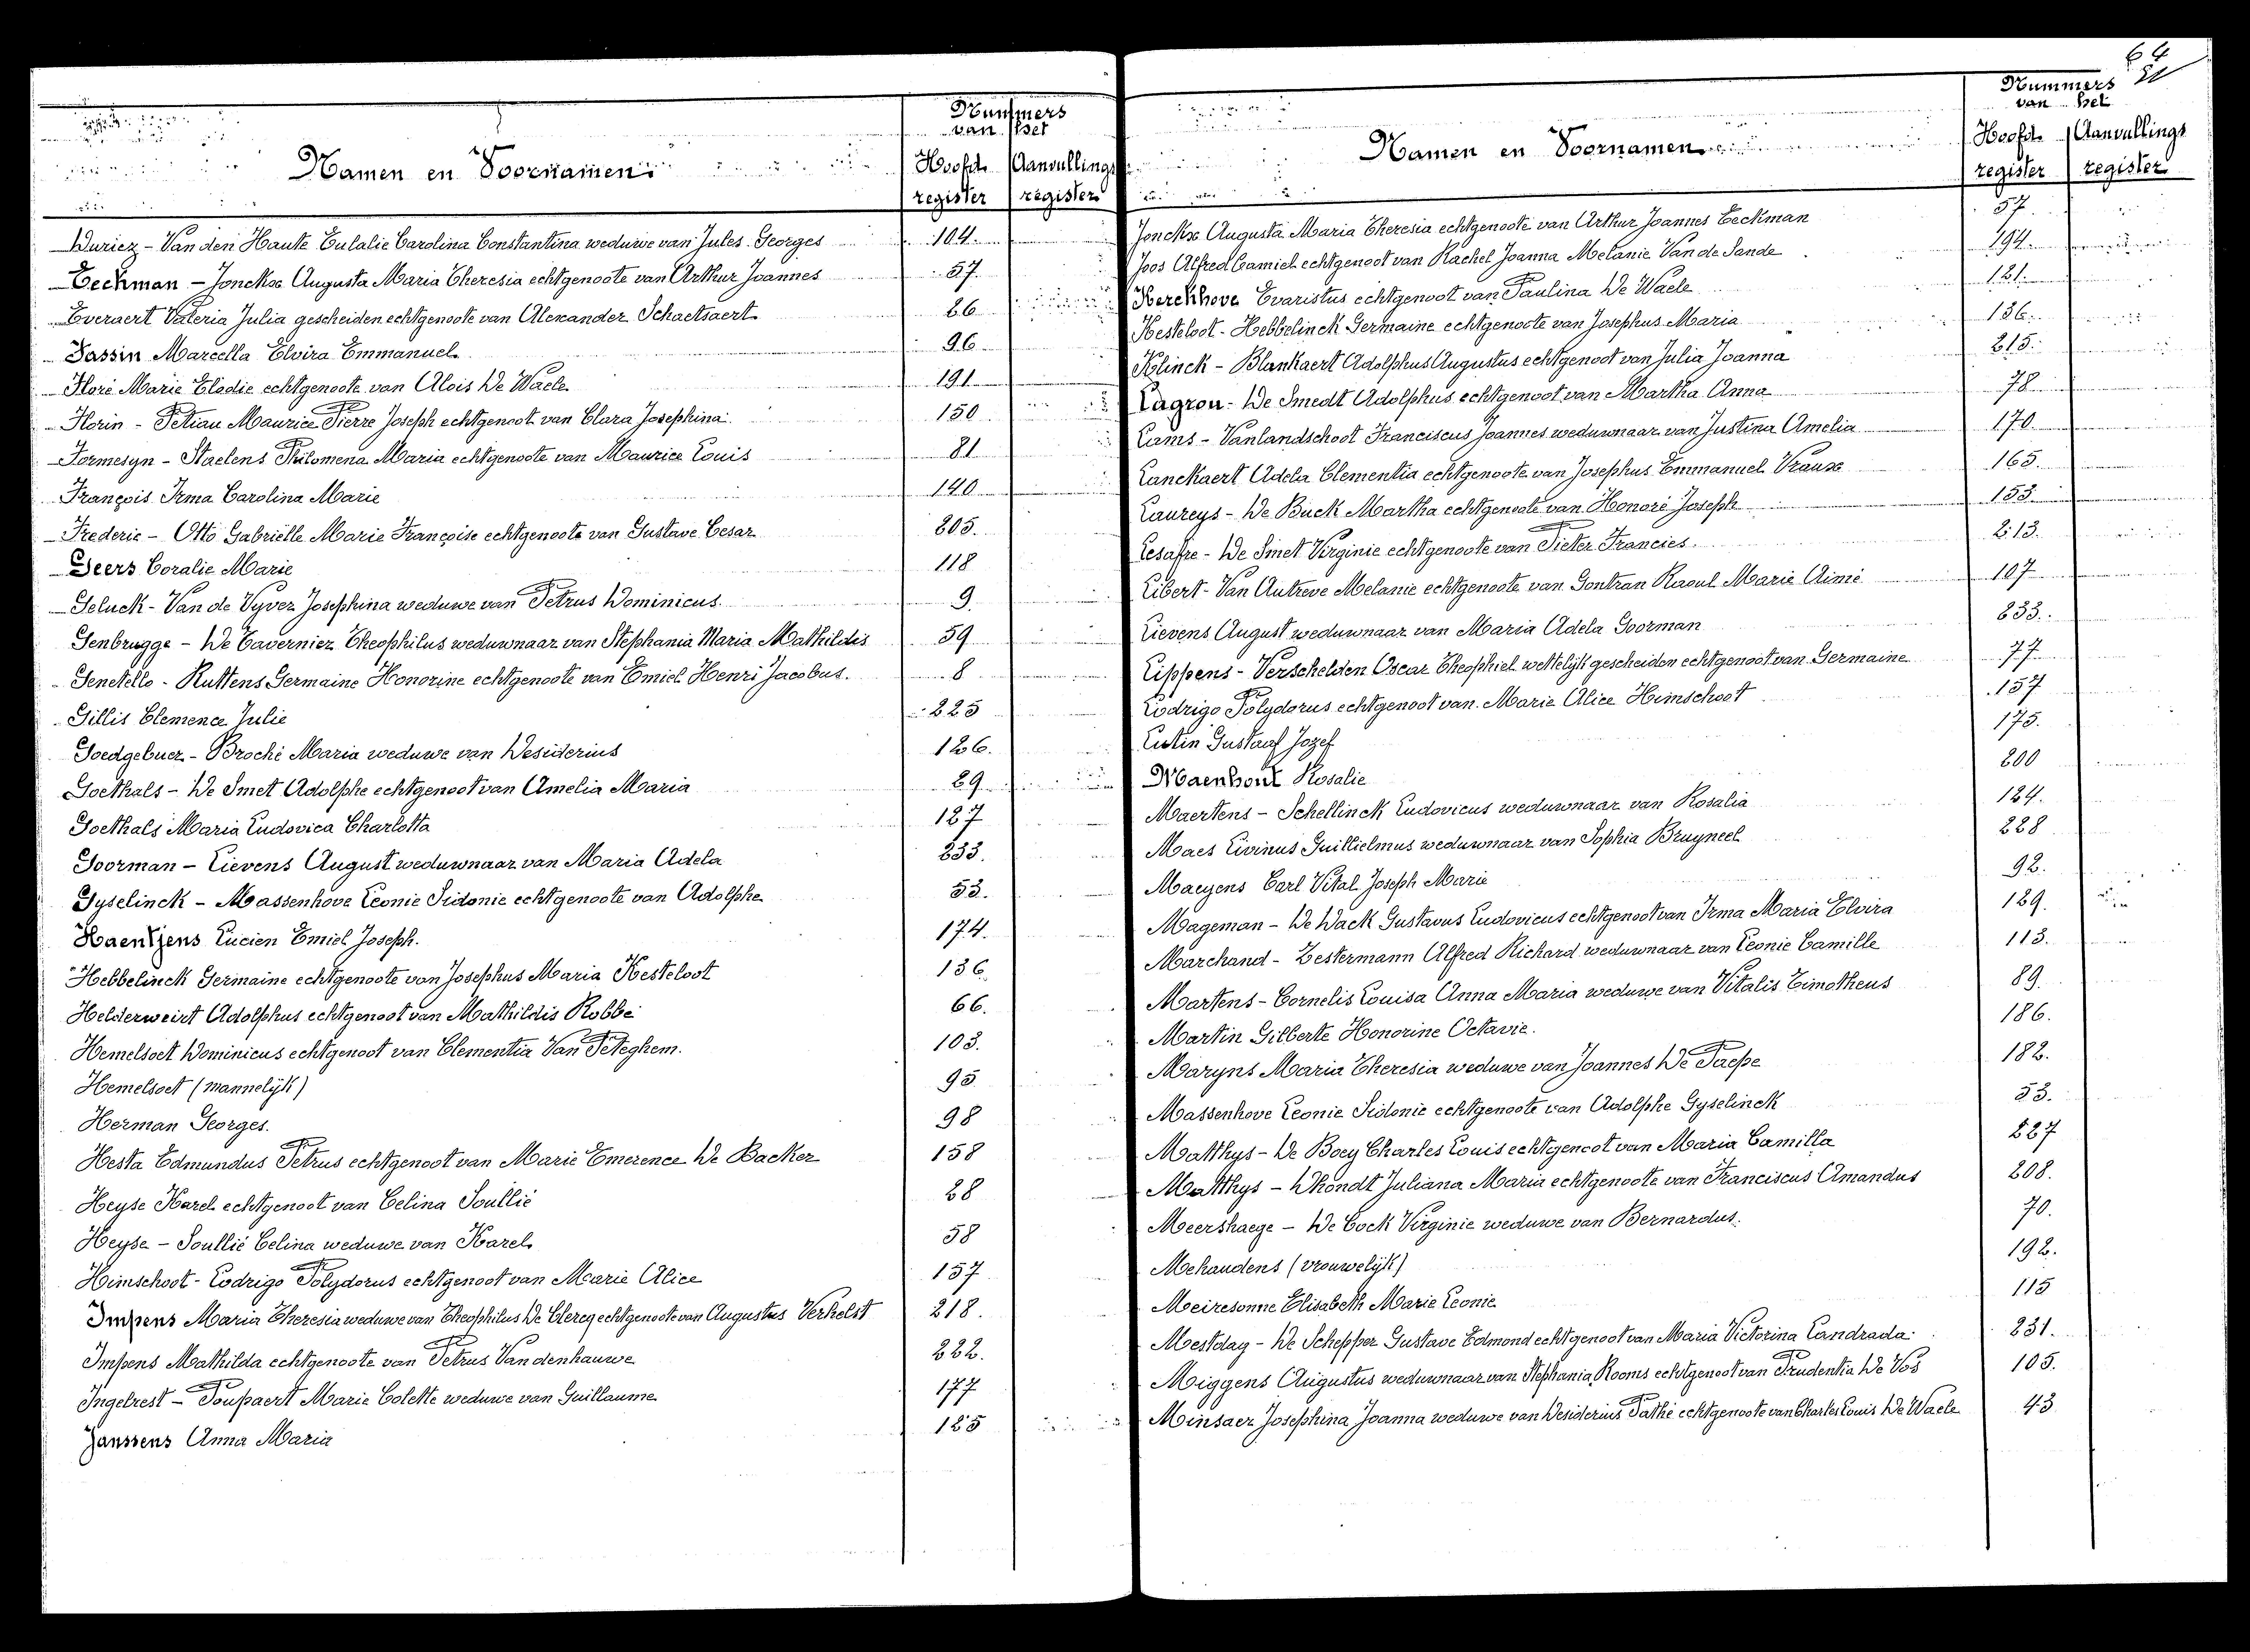 64
21
Nummers
van het
Namen en Voornamen.
Hoofd- Aanvullings
register register
Duriez - Van den Haute Eulalie Carolina Constantina weduwe van Jules Georges 104.
Eeckman - Jonckx Augusta Maria Theresia echtgenoote van Arthur Joannes 57.
Everaert Valeria Julia gescheiden echtgenoote van Alexander Schaetsaert 26
Fassin Marcella Elvira Emmanuel 96
Floré Marie Elodie echtgenoote van Aloïs De Waele 191
Florin - Petiau Maurice Pierre Joseph echtgenoot van Clara Josephina 150
Formesyn - Staelens Philomena Maria echtgenoote van Maurice Louis 81
François Irma Carolina Marie 140
Frederic - Otto Gabriëlle Marie Françoise echtgenoote van Gustave Cesar 205.
Geers Coralie Marie 118
Geluck - Van de Vyver Josephina weduwe van Petrus Dominicus. 9.
Genbrugge - De Tavernier Theophilus weduwnaar van Stephania Maria Mathildis 59
Genetello - Ruttens Germaine Honorine echtgenoote van Emiel Henri Jacobus. 8
Gillis Clemence Julie 225
Goedgebuer - Broché Maria weduwe van Desiderius 126.
Goethals - De Smet Adolphe echtgenoot van Amelia Maria 29
Goethals Maria Ludovica Charlotta 127
Goorman - Lievens August weduwnaar van Maria Adela 233.
Gyselinck - Massenhove Leonie Sidonie echtgenoote van Adolphe 53.
Haentjens Lucien Emiel Joseph. 174.
Hebbelinck Germaine echtgenoote van Josephus Maria Kesteloot 136
Helderweirt Adolphus echtgenoot van Mathildis Robbe 66.
Hemelsoet Dominicus echtgenoot van Clementia Van Peteghem. 103.
Hemelsoet (mannelijk) 95
Herman Georges. 98
Hesta Edmundus Petrus echtgenoot van Marie Emerence De Backer 158
Heyse Karel echtgenoot van Celina Soullié 28
Heyse - Soullié Celina weduwe van Karel 58
Himschoot - Lodrigo Polydorus echtgenoot van Marie Alice 157
Impens Maria Theresia weduwe van Theophilus De Clercq echtgenoote van Augustus Verhelst 218.
Impens Mathilda echtgenoote van Petrus Vandenhauwe 222.
Ingelrest - Poupaert Marie Colette weduwe van Guillaume 177
Janssens Anna Maria 125
Nummers
van het
Namen en Voornamen.
Hoofd- Aanvullings
register register
Jonckx Augusta Maria Theresia echtgenoote van Arthur Joannes Eeckman 57.
Joos Alfred Camiel echtgenoot van Rachel Joanna Melanie Van de Sande 194.
Kerckhove Evaristus echtgenoot van Paulina De Waele 121.
Kesteloot - Hebbelinck Germaine echtgenoote van Josephus Maria 136.
Klinck - Blankaert Adolphus Augustus echtgenoot van Julia Joanna 215.
Lagrou - De Smedt Adolphus echtgenoot van Martha Anna 78
Lams - Vanlandschoot Franciscus Joannes weduwnaar van Justina Amelia 170
Lanckaert Adela Clementia echtgenoote van Josephus Emmanuel Vraux 165.
Laureys - De Buck Martha echtgenoote van Honoré Joseph 153.
Lesaffre - De Smet Virginie echtgenoote van Pieter Francies. 213.
Libert - Van Autreve Melanie echtgenoote van Gontran Raoul Marie Aimé 107
Lievens August weduwnaar van Maria Adela Goorman 233.
Lippens - Verschelden Oscar Theophiel wettelijk gescheiden echtgenoot van Germaine 77
Lodrigo Polydorus echtgenoot van Marie Alice Himschoot 157
Lustin Gustaaf Jozef 175.
Maenhout Rosalie 200
Maertens - Schellinck Ludovicus weduwnaar van Rosalia 124.
Maes Livinus Guillielmus weduwnaar van Sophia Bruyneel 228
Maeyens Carl Vital Joseph Marie 92.
Mageman - De Wack Gustavus Ludovicus echtgenoot van Irma Maria Elvira 129.
Marchand - Zestermann Alfred Richard weduwnaar van Leonie Camille 113.
Martens - Cornelis Louisa Anna Maria weduwe van Vitalis Timotheus 89.
Martin Gilberte Honorine Octavie. 186.
Maryns Maria Theresia weduwe van Joannes De Paepe 182.
Massenhove Leonie Sidonie echtgenoote van Adolphe Gyselinck 53.
Matthys - De Boey Charles Louis echtgenoot van Maria Camilla 227
Matthys - Dhondt Juliana Maria echtgenoote van Franciscus Amandus 208.
Meershaege - De Cock Virginie weduwe van Bernardus. 70.
Mehaudens (vrouwelijk) 192.
Meiresonne Elisabeth Marie Leonie 115
Mestdag - De Schepper Gustave Edmond echtgenoot van Maria Victorina Landrada 231.
Miggens Augustus weduwnaar van Stephania Rooms echtgenoot van Prudentia De Vos 105.
Minsaer Josephina Joanna weduwe van Desiderius Pathé echtgenoote van Charles Louis De Waele 43